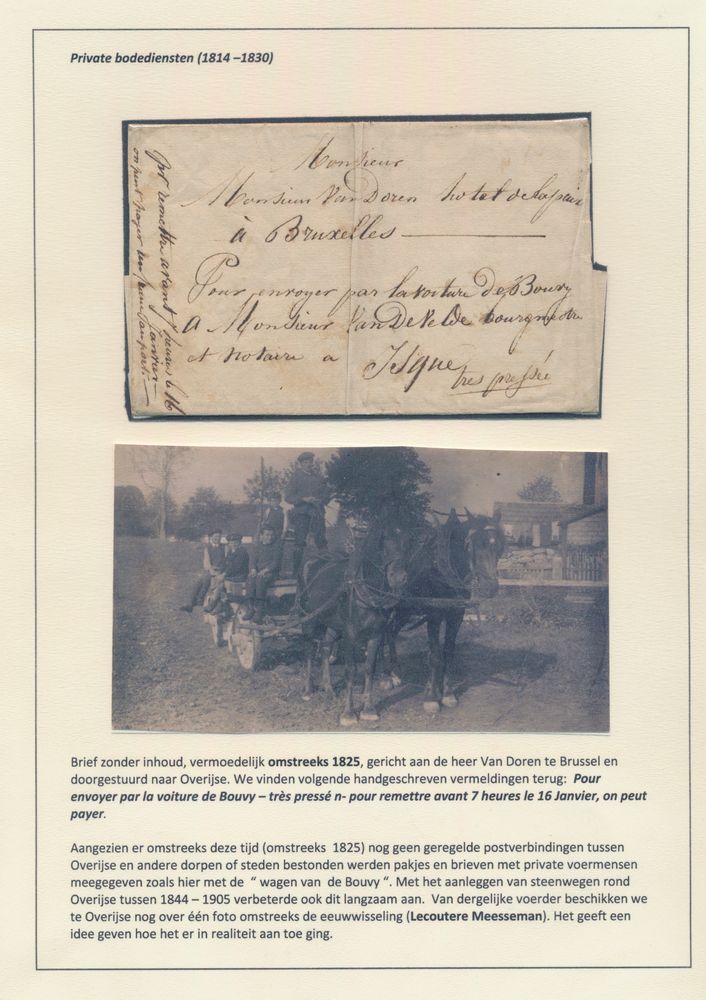 Private bodediensten (1814 –1830)
Monsieur
Monsieur Van Doren hotel de la paix
à Bruxelles
Pour envoyer par la voiture de Bouvy
A Monsieur Van De Velde bourgmestre
et notaire a Isque
tres pressée
pr remettre avant 7 heures le 16
Janvier
on peut payer
Brief zonder inhoud, vermoedelijk omstreeks 1825, gericht aan de heer Van Doren te Brussel en
doorgestuurd naar Overijse. We vinden volgende handgeschreven vermeldingen terug:  Pour
envoyer par la voiture de Bouvy – très pressé n- pour remettre avant 7 heures le 16 Janvier, on peut
payer.
Aangezien er omstreeks deze tijd (omstreeks  1825) nog geen geregelde postverbindingen tussen
Overijse en andere dorpen of steden bestonden werden pakjes en brieven met private voermensen
meegegeven zoals hier met de  “ wagen van  de Bouvy “. Met het aanleggen van steenwegen rond
Overijse tussen 1844 – 1905 verbeterde ook dit langzaam aan.  Van dergelijke voerder beschikken we
te Overijse nog over één foto omstreeks de eeuwwisseling (Lecoutere Meesseman). Het geeft een
idee geven hoe het er in realiteit aan toe ging.